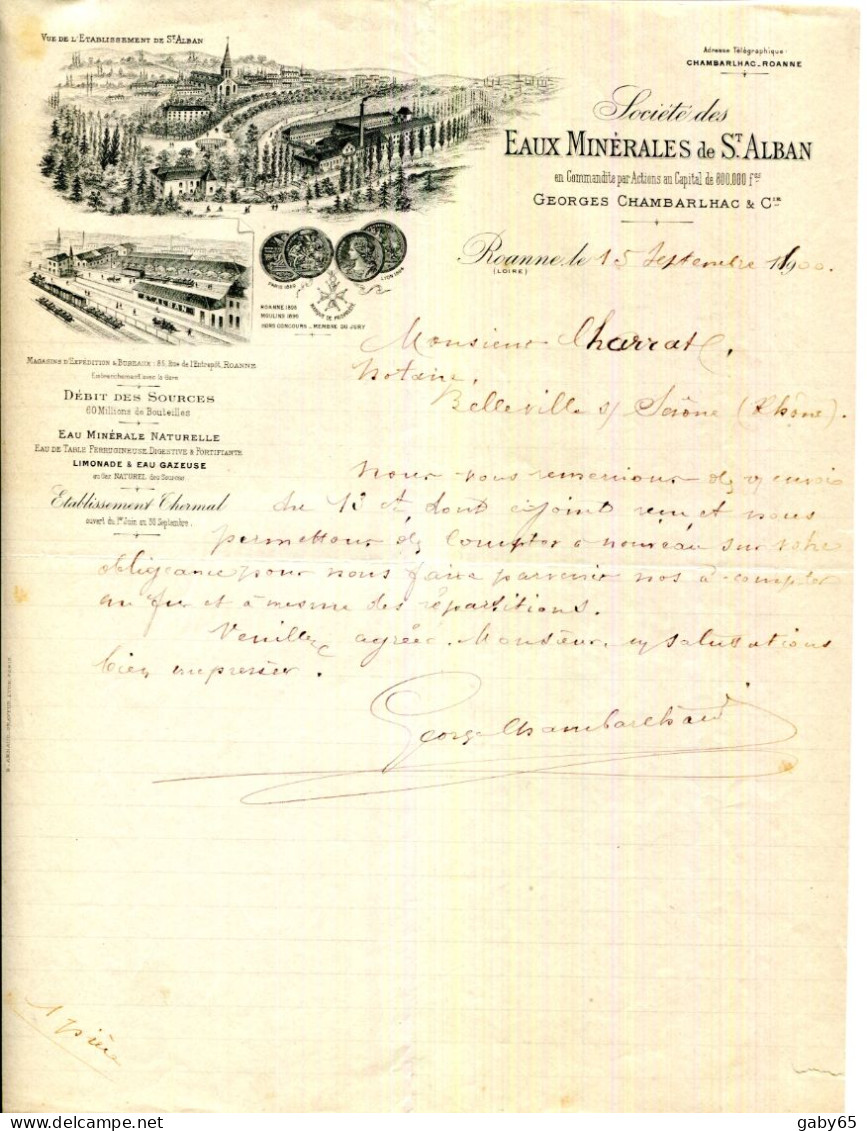 Vue de l'Etablissement de St Alban
Adresse Télégraphique:
CHAMBARLHAC-ROANNE
Société des
EAUX MINÉRALES de ST ALBAN
en Commandite par Actions au Capital de 800.000 frs
GEORGES CHAMBARLHAC & Cie
Roanne, le 15 Septembre 1900.
(LOIRE)
PARIS 1889
LYON 1894
ROANNE 1895
MOULINS 1896
HORS CONCOURS - MEMBRE DU JURY
Monsieur Charrat,
Notaire,
Belleville s/ Saône (Rhône).
MAGASINS D'EXPÉDITION & BUREAUX: 85, Rue de l'Entrepôt, ROANNE
Embranchement avec la Gare
DÉBIT DES SOURCES
60 Millions de Bouteilles
EAU MINÉRALE NATURELLE
EAU DE TABLE FERRUGINEUSE, DIGESTIVE & FORTIFIANTE
LIMONADE & EAU GAZEUSE
au Gaz NATUREL des Sources
Etablissement Thermal
ouvert du 1er Juin au 30 Septembre.
Nous vous remercions de envoi
du 13 ct, dont reçu et nous
permettons de compter à nouveau sur votre
obligeance pour nous faire parvenir nos à-compter
au fur et à mesure des répartitions.
Veuillez agréer, Monsieur, salutations
bien empressées.
George Chambarlhac
1 pièce
delcampe.net
gaby65